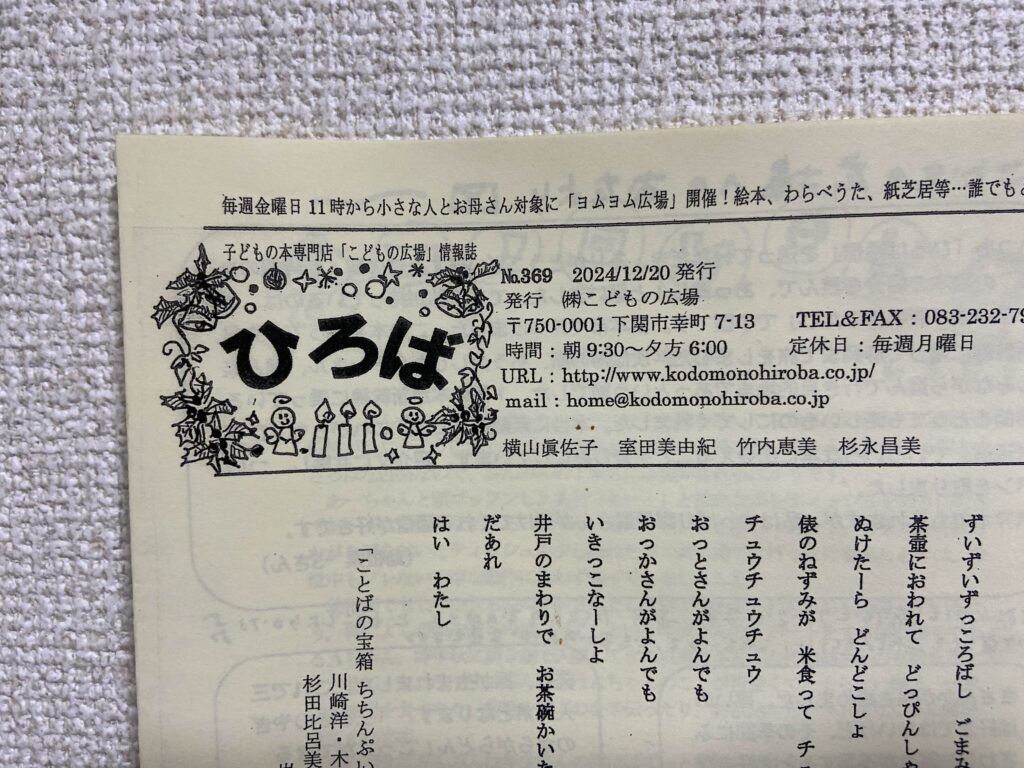 毎週金曜日11時から小さな人とお母さん対象に「ヨムヨム広場」開催！絵本、わらべうた、紙芝居等…誰でも
子どもの本専門店「こどもの広場」情報誌
ひろば
№369 2024/12/20 発行
発行 ㈱こどもの広場
〒750-0001 下関市幸町 7-13 TEL＆FAX：083-232-79
時間：朝 9:30～夕方 6:00 定休日：毎週月曜日
URL：http://www.kodomonohiroba.co.jp/
mail：home@kodomonohiroba.co.jp
横山眞佐子 室田美由紀 竹内恵美 杉永昌美
ずいずいずっころばし ごまみ
茶壺におわれて どっぴんしゃ
ぬけたーら どんどこしょ
俵のねずみが 米食って チュ
チュウチュウチュウ
おっとさんがよんでも
おっかさんがよんでも
いきっこなーしよ
井戸のまわりで お茶碗かいた
だあれ
はい わたし
「ことばの宝箱 ちちんぷい
川崎洋・木
杉田比呂美